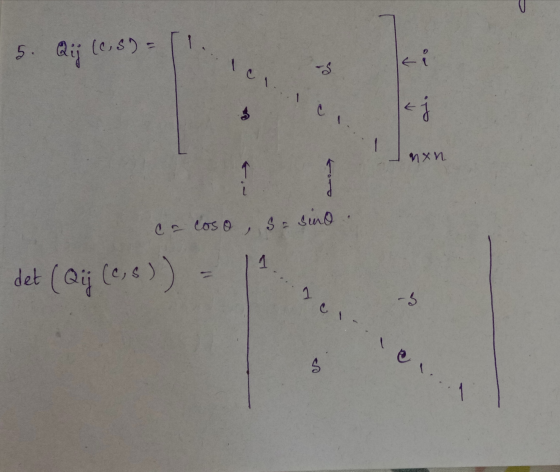 5. Qij (c,s) = [ 1
⋱
1
c -s ← i
1
⋱
1
s c ← j
1
⋱
1 ] n×n
↑ ↑
i j
c = cosθ , s = sinθ .
det (Qij (c,s)) = | 1
⋱
1
c -s
1
⋱
1
s c
1
⋱
1 |